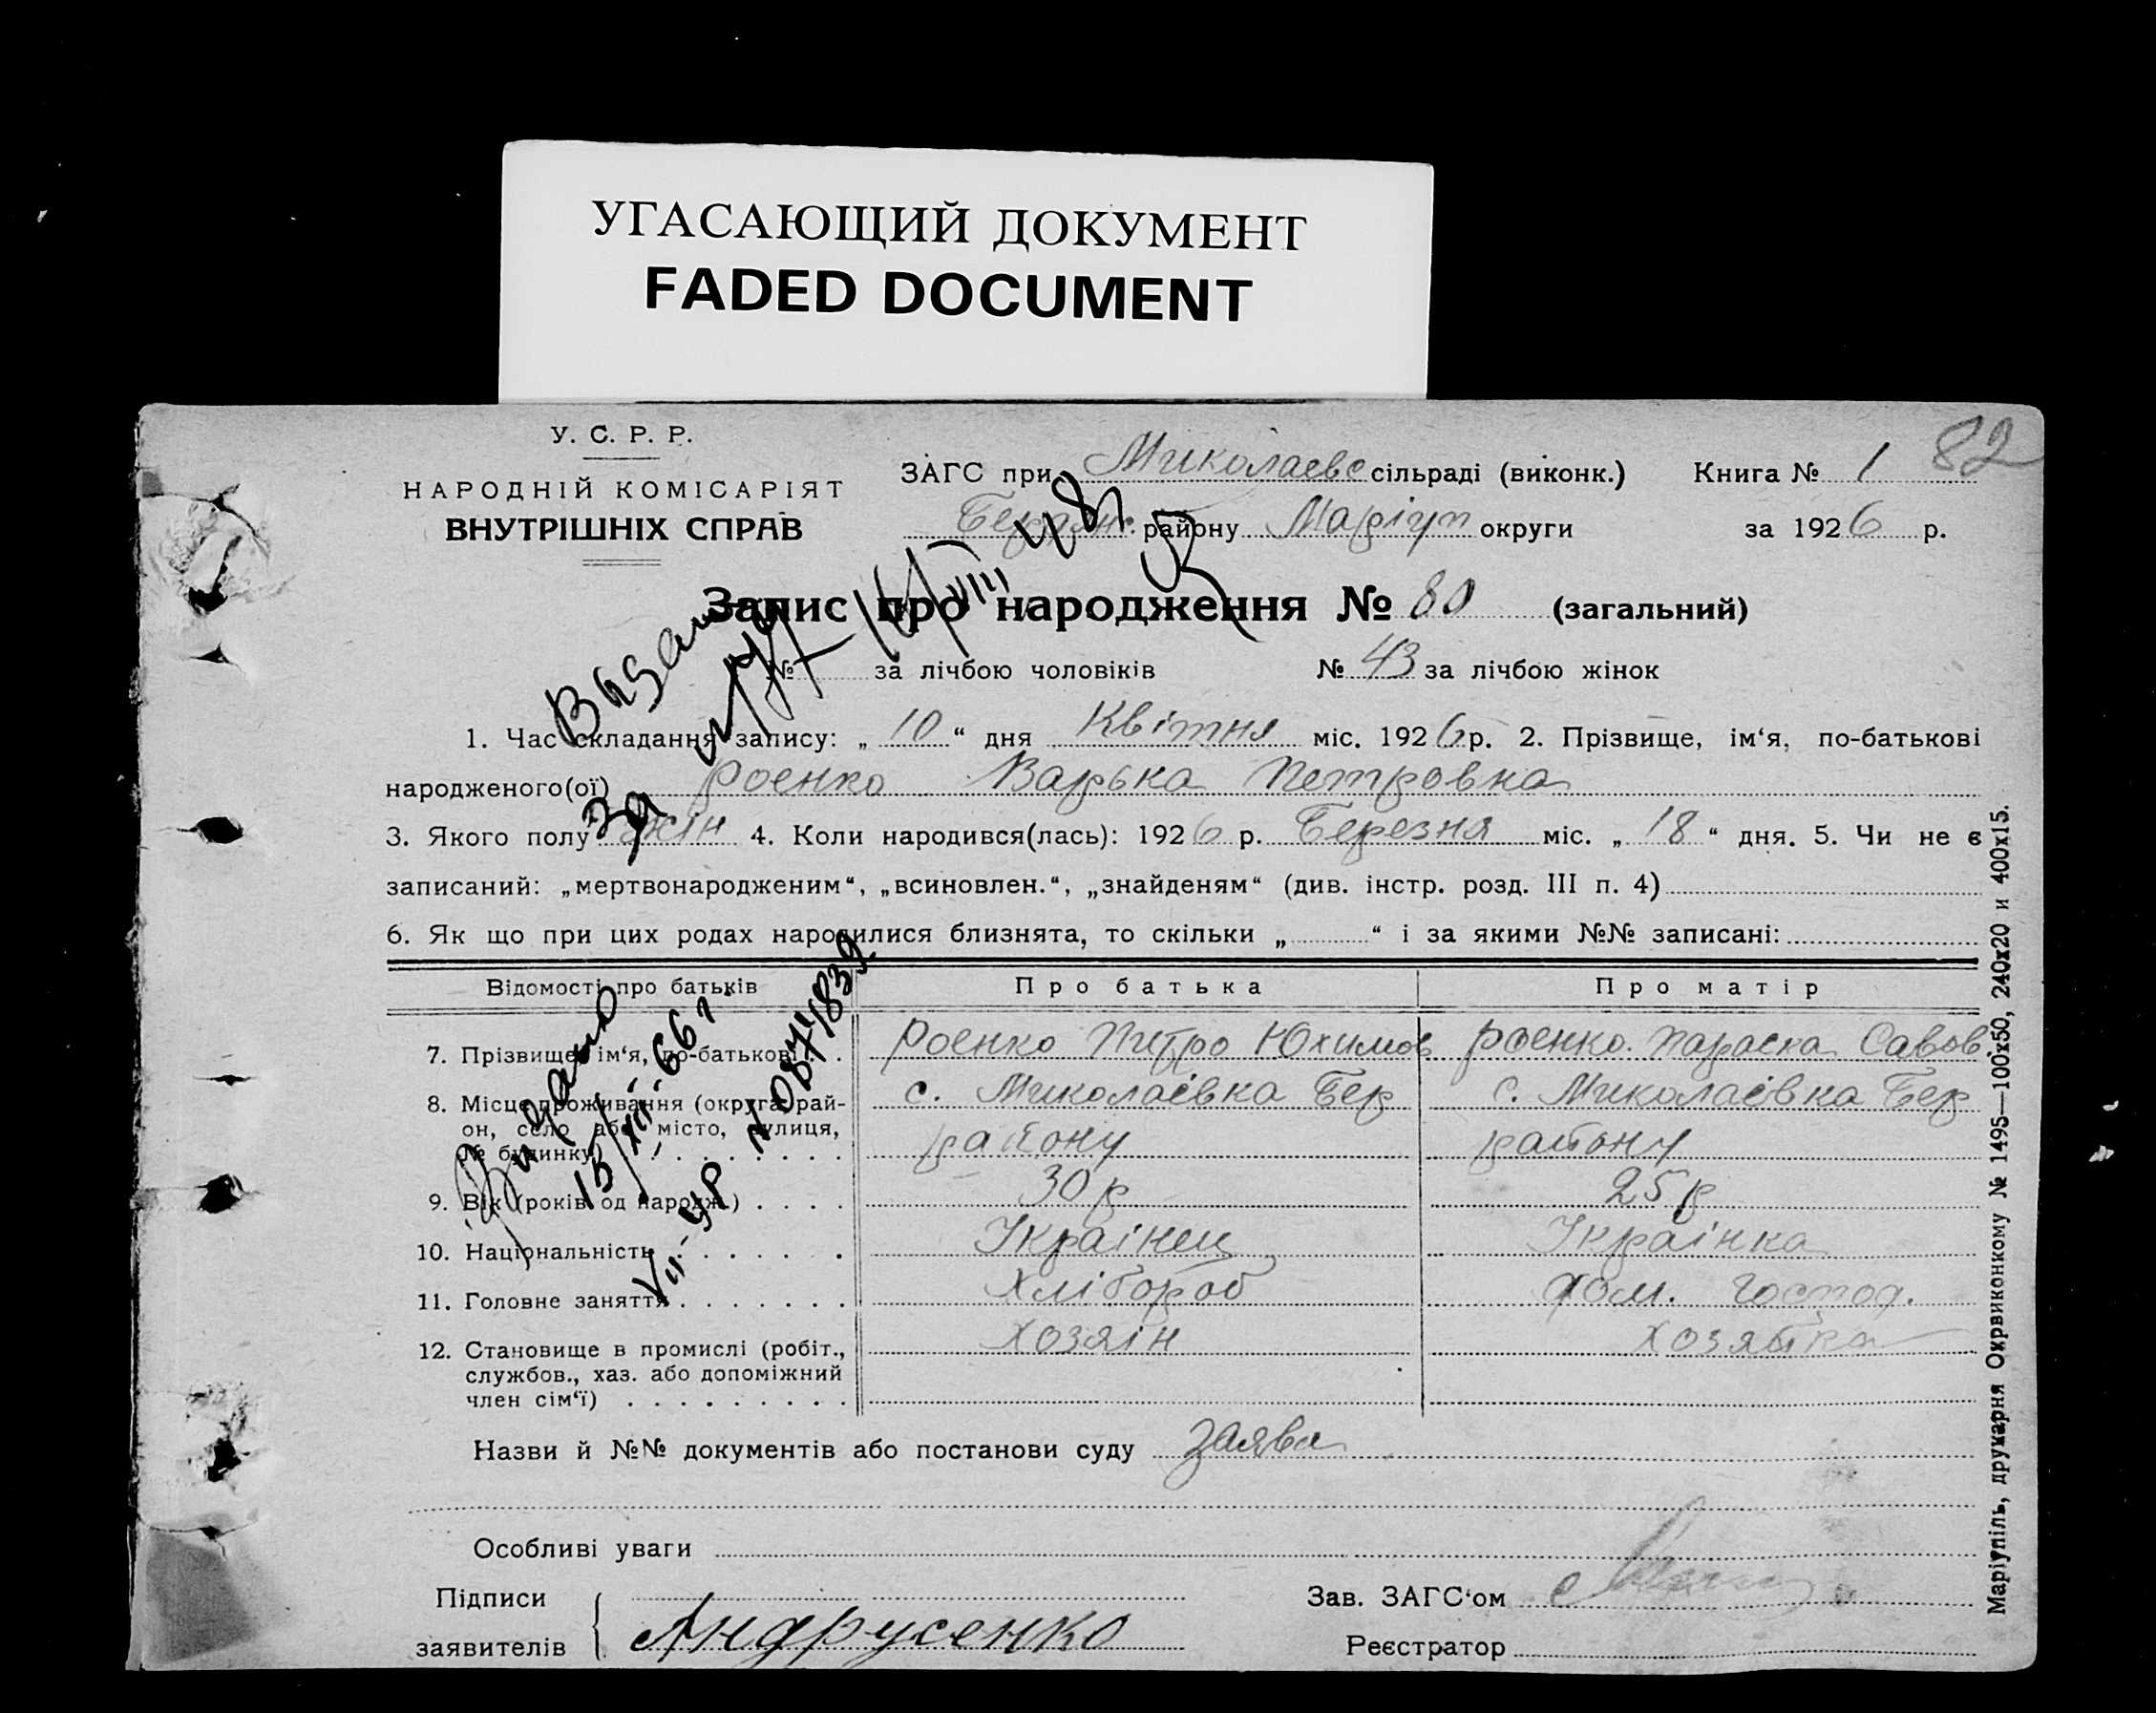 УГАСАЮЩИЙ ДОКУМЕНТ
FADED DOCUMENT
У. С. Р. Р.
НАРОДНІЙ КОМІСАРІЯТ
ВНУТРІШНІХ СПРАВ
ЗАГС при Миколаевс сільраді (виконк.) Книга № 1 82
Бердян. району Маріуп округи за 1926 р.
Запис про народження № 80 (загальний)
№ за лічбою чоловіків № 43 за лічбою жінок
1. Час складання запису: „ 10 “ дня Квітня міс. 1926 р. 2. Прізвище, ім‘я, по-батькові
народженого(ої) Роенко Варька Петровна
3. Якого полу жін 4. Коли народився(лась): 1926 р. Березня міс. „ 18 “ дня. 5. Чи не є
записаний: „мертвонародженим“, „всиновлен.“, „знайденям“ (див. інстр. розд. III п. 4)
6. Як що при цих родах народилися близнята, то скільки „ “ і за якими №№ записані:
Відомості про батьків Про батька Про матір
7. Прізвище, ім‘я, по-батькові . . Роенко Петро Юхимов Роенко Параска Савов.
8. Місце проживання (округа, рай- с. Миколаєвка Бер с. Миколаєвка Бер
он, село або місто, вулиця, району району
№ будинку)
9. Вік (років од народж.) . . . . 30 р 25 р
10. Національність . . . . . . Українец Українка
11. Головне заняття . . . . . . . Хлібороб Дом. господ.
12. Становище в промислі (робіт., Хозяін Хозяйка
службов., хаз. або допоміжний
член сім‘ї) . . . . . . . . .
Назви й №№ документів або постанови суду заява
Особливі уваги
Підписи
заявителів Андрусенко
Зав. ЗАГС‘ом
Реєстратор
Видано
15/XII-66 г
VII-УР № 0874839
Маріупіль, друкарня Окрвиконкому № 1495—100х50, 240х20 и 400х15.